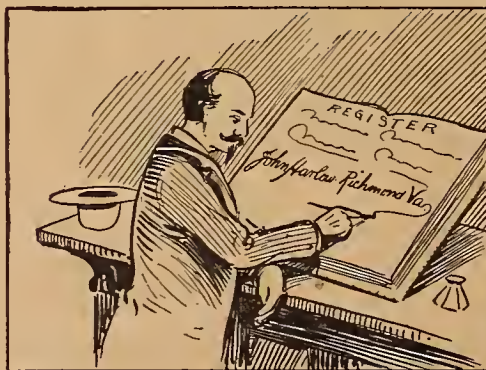 REGISTER
John Harlow Richmond Va